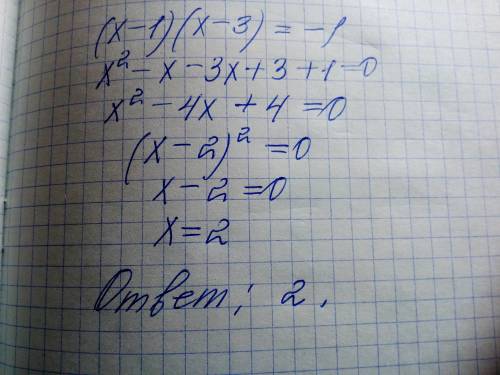 (x-1)(x-3) = -1
x² - x - 3x + 3 + 1 = 0
x² - 4x + 4 = 0
(x-2)² = 0
x - 2 = 0
x = 2
Ответ: 2.